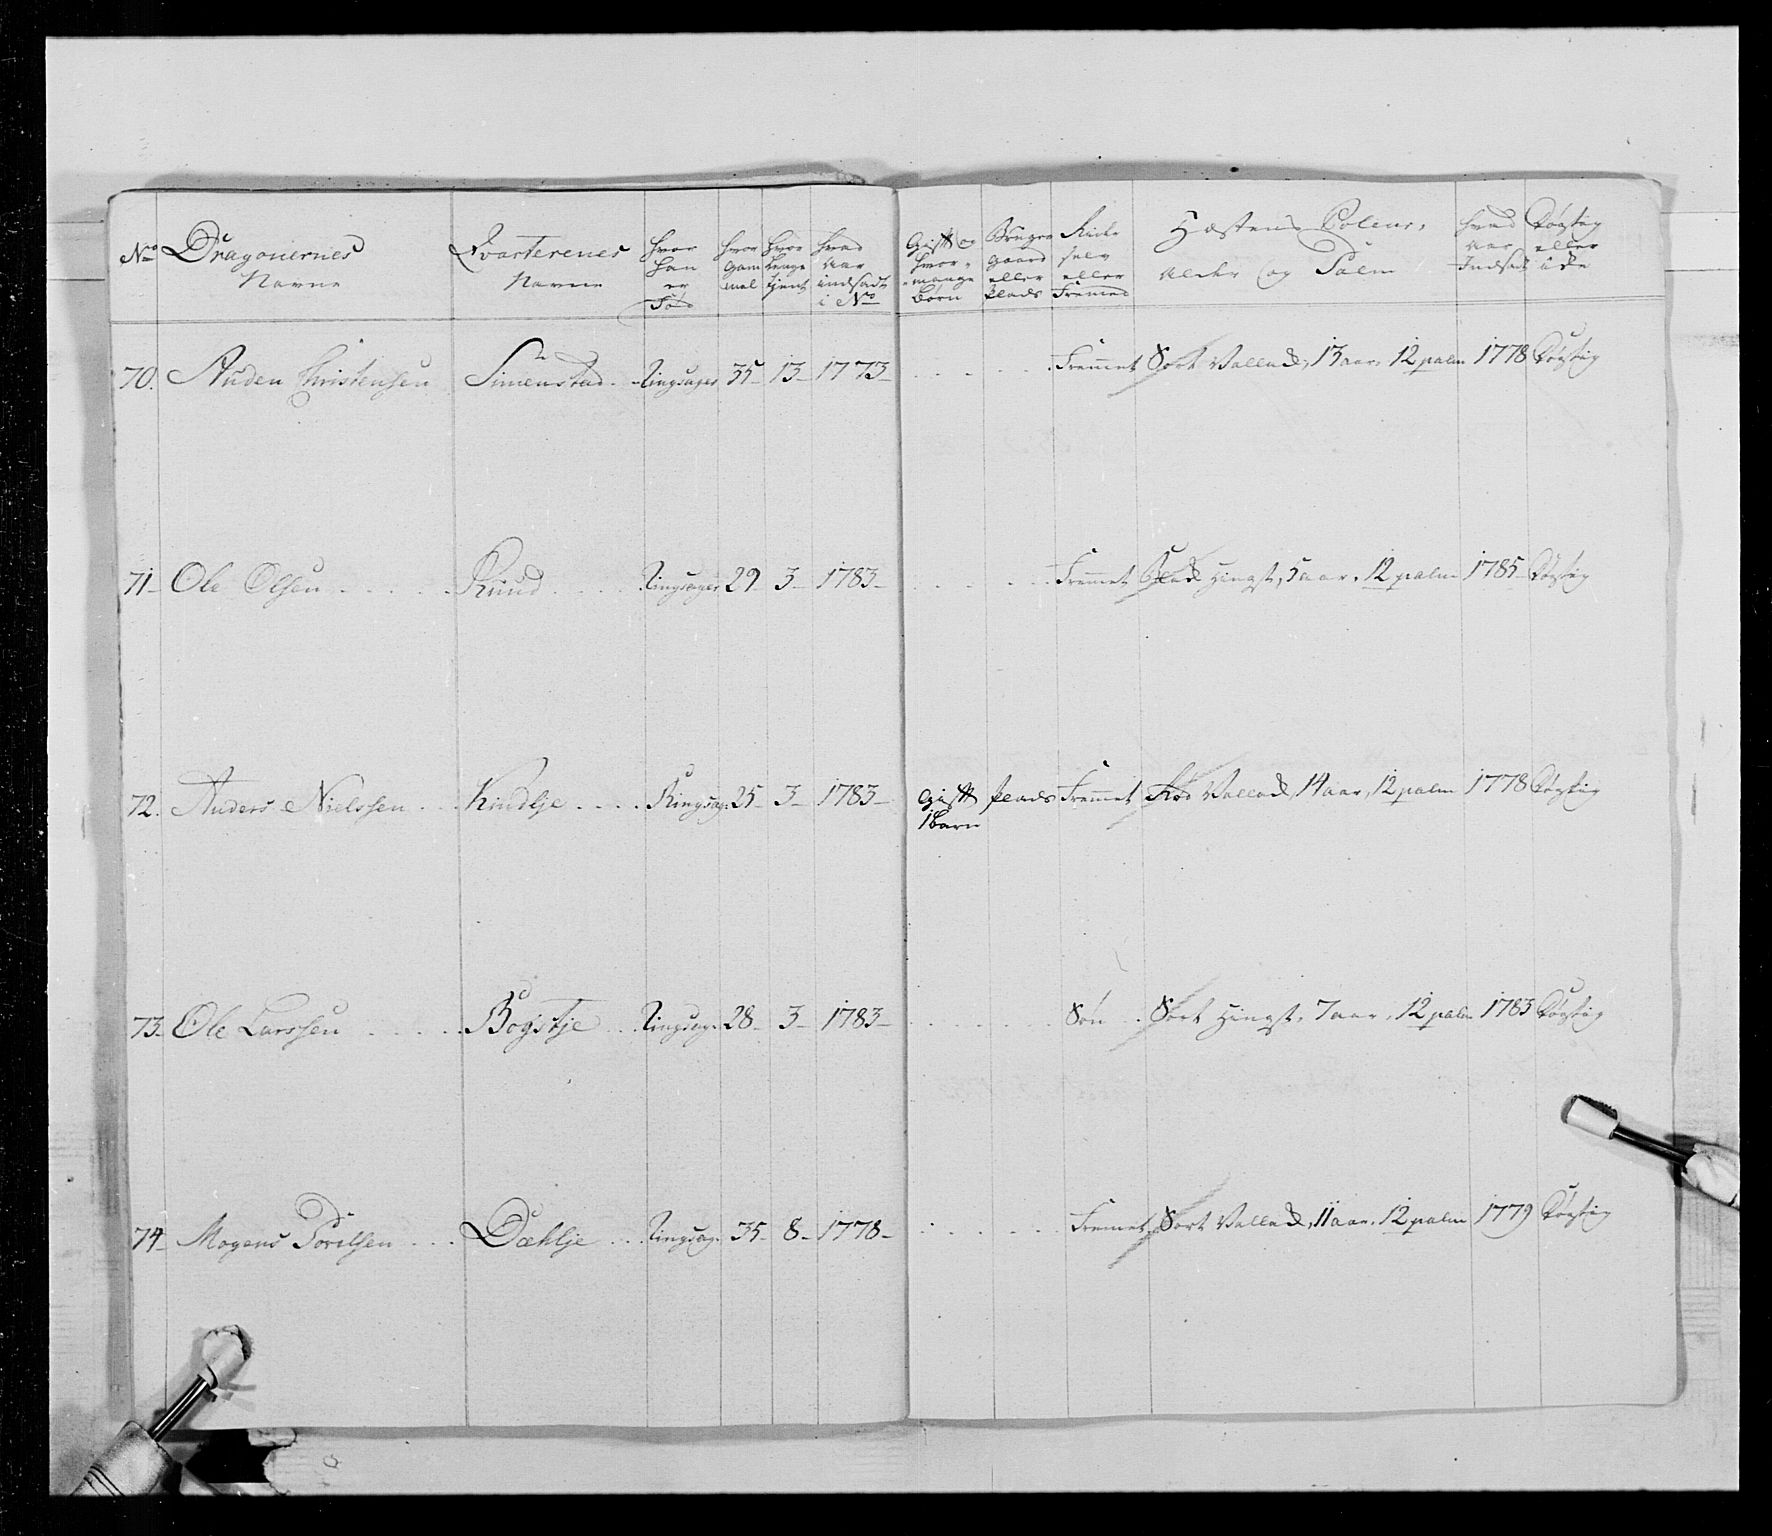 No Dragonernes Navne
Qvarterenes Navne
hvor han er Fød
hvor gam mel
hvor lenge tjent
hvad aar indsadt i No
Gift og hvor mange Børn
Bruger gaard eller Plads
Ride selv eller Fremed
Hæstens Coleur, alder og Palm
hvad aar Indsadt
Døgtig eller icke
70. Anden Christensen Simenstad Ringsager 35 13 1773 Fremmet Sort Vallack, 13 aar, 12 palm 1778 Døgtig
71 Ole Olsen Ruud Ringsager 29 3 1783 Fremmet Hingst, 5 aar, 12 palm 1785 Døgtig
72. Anders Nielssen Kindlje Ringsag: 25 3 1783 Gift 1 Barn Plads Fremmet Rød Vallack, 14 aar, 12 palm 1778 Døgtig
73 Ole Larssen Bogstje Ringsag: 28 3 1783 Søn Sort Hingst, 7 aar, 12 palm 1783 Døgtig
74 Mogens Povelsen Dæhlje Ringsag: 35 8 1778 Fremet Sort Vallack, 11 aar, 12 palm 1779 Døgtig